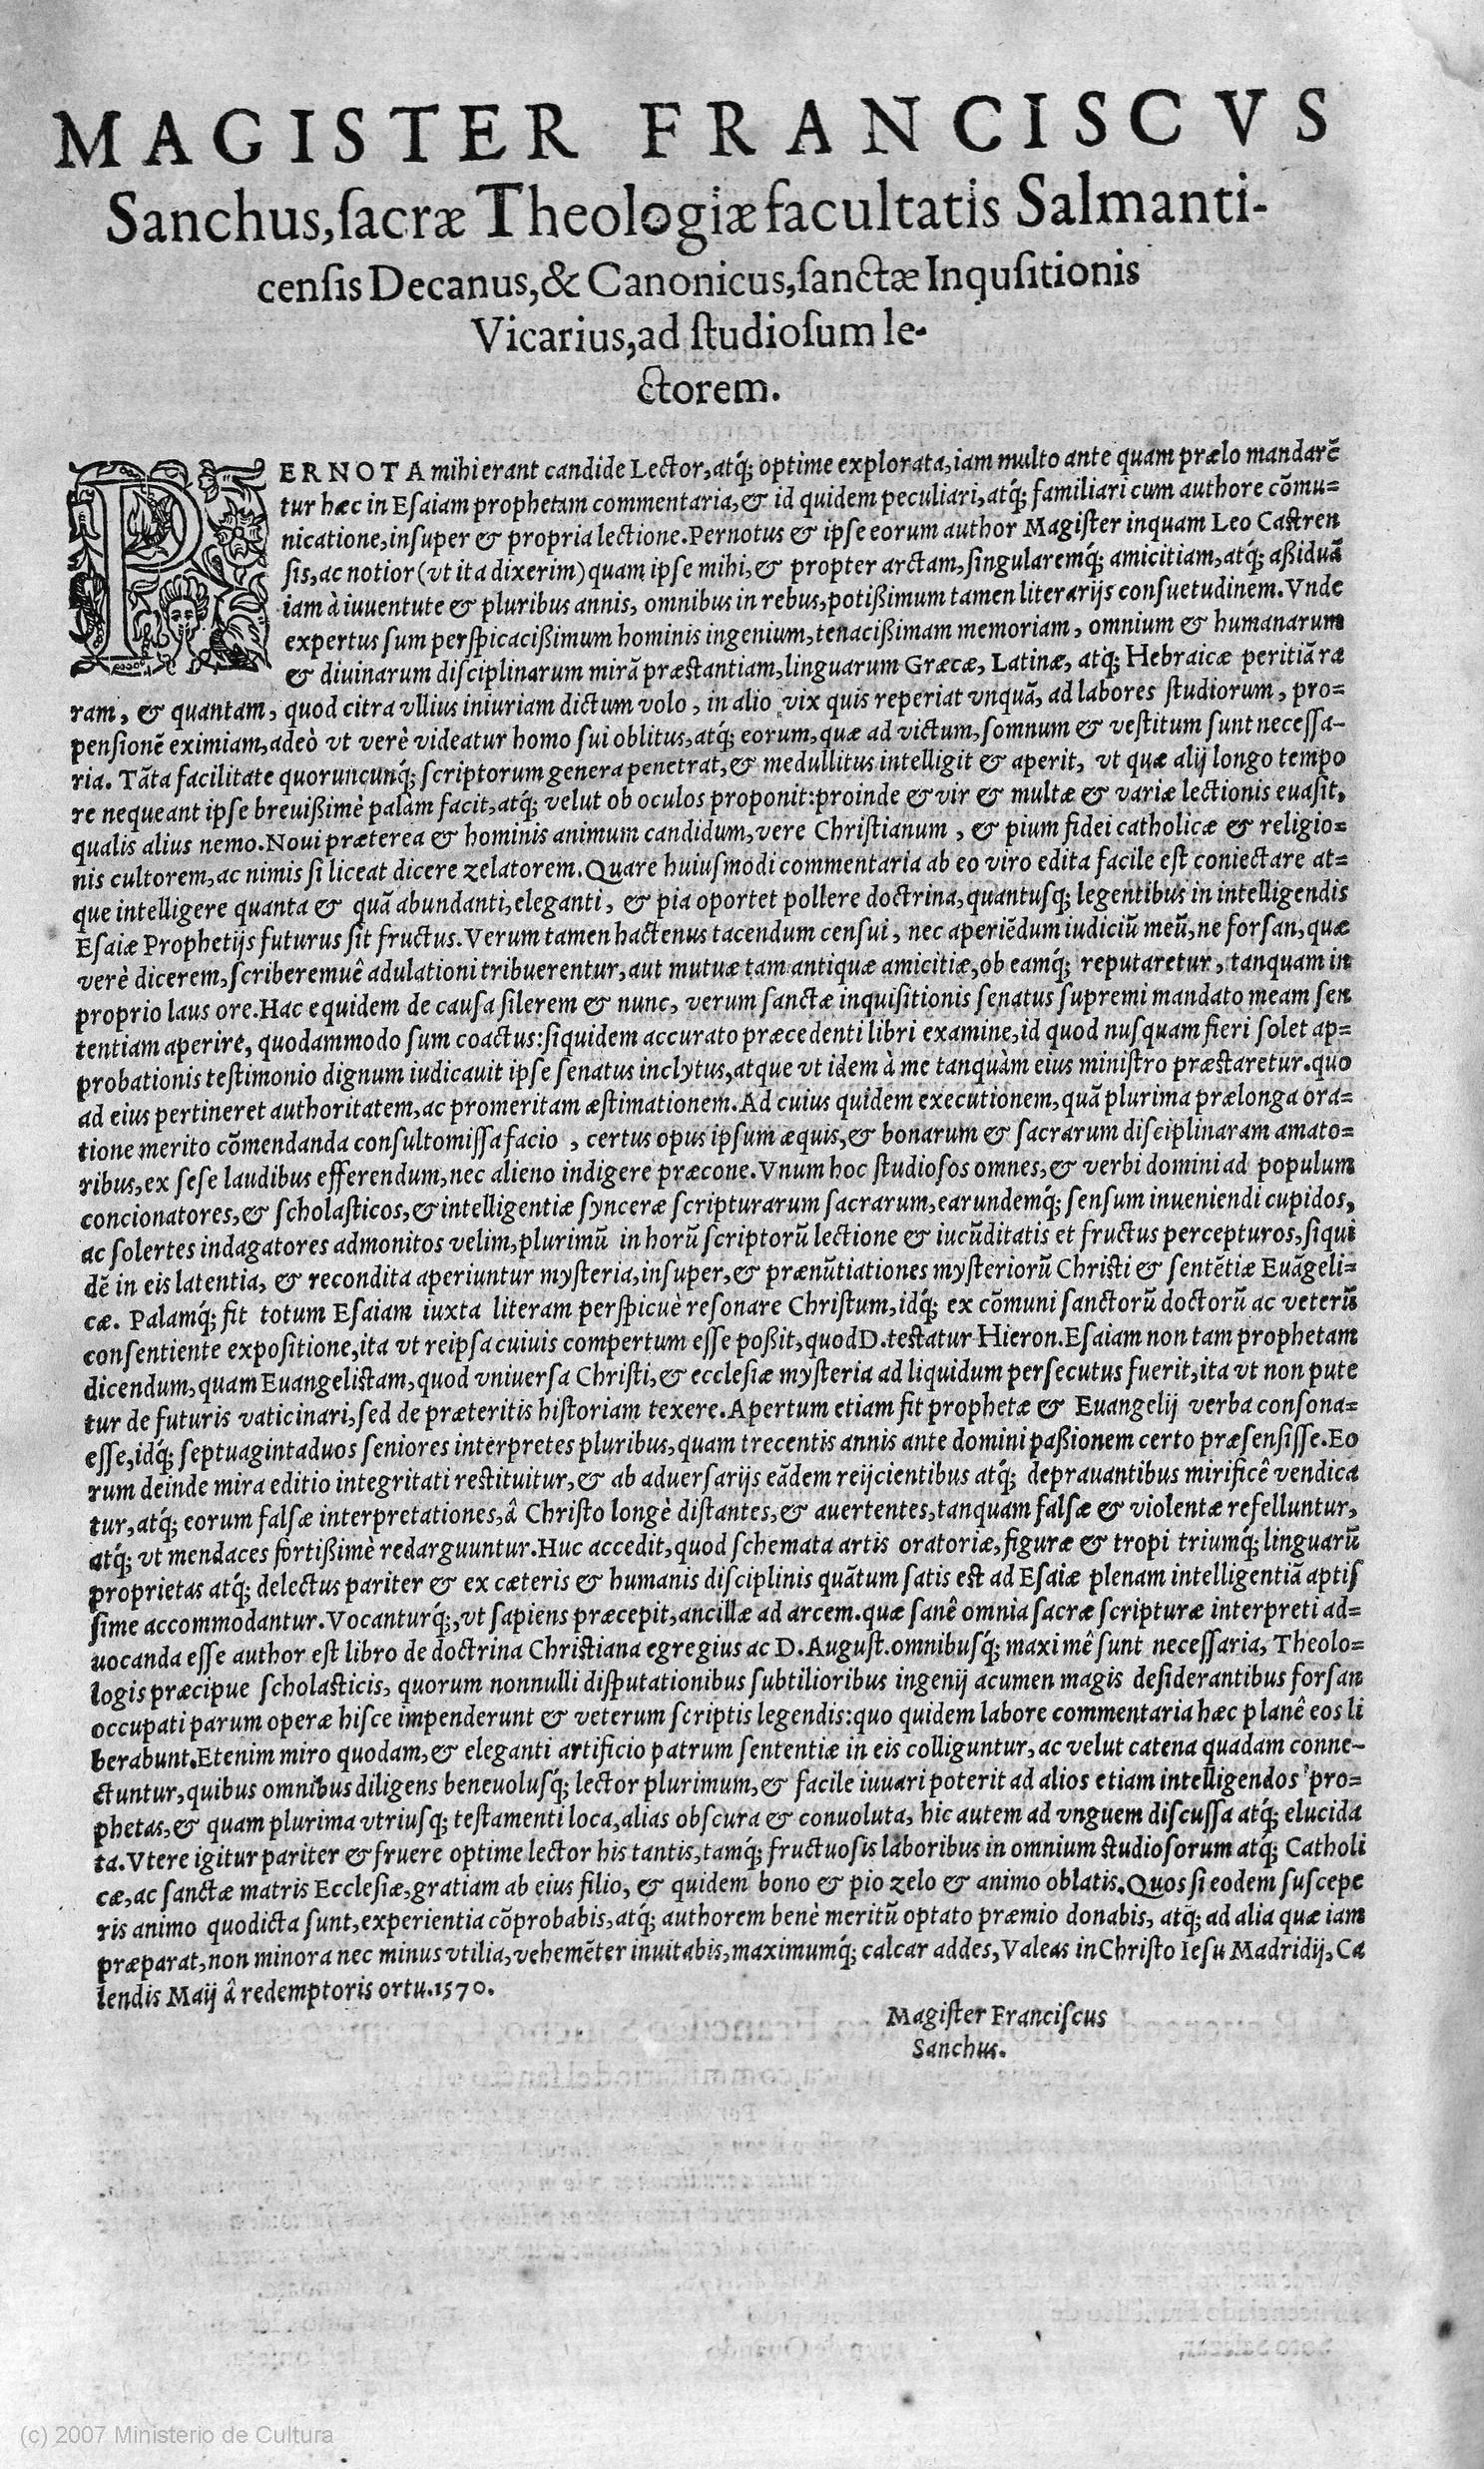 MAGISTER FRANCISCVS
Sanchus, ſacræ Theologiæ facultatis Salmanti-
cenſis Decanus, & Canonicus, ſanctæ Inquſitionis
Vicarius, ad ſtudioſum le-
ctorem.
PERNOTA mihi erant candide Lector, atq́; optime explorata, iam multo ante quam prælo mandarẽ
tur hæc in Eſaiam prophetam commentaria, & id quidem peculiari, atq́; familiari cum authore cõmu=
nicatione, inſuper & propria lectione. Pernotus & ipſe eorum author Magiſter inquam Leo Caſtren
ſis, ac notior (vt ita dixerim) quam ipſe mihi, & propter arctam, ſingularemq́; amicitiam, atq́; aßiduã
iam à iuuentute & pluribus annis, omnibus in rebus, potißimum tamen literarijs conſuetudinem. Vnde
expertus ſum perſpicacißimum hominis ingenium, tenacißimam memoriam, omnium & humanarum
& diuinarum diſciplinarum mirã præstantiam, linguarum Græcæ, Latinæ, atq́; Hebraicæ peritiã ra
ram, & quantam, quod citra vllius iniuriam dictum volo, in alio vix quis reperiat vnquã, ad labores ſtudiorum, pro=
penſionẽ eximiam, adeò vt verè videatur homo ſui oblitus, atq́; eorum, quæ ad victum, ſomnum & veſtitum ſunt neceſſa-
ria. Tãta facilitate quoruncunq́; ſcriptorum genera penetrat, & medullitus intelligit & aperit, vt quæ alij longo tempo
re nequeant ipſe breuißimè palàm facit, atq́; velut ob oculos proponit: proinde & vir & multæ & variæ lectionis euaſit,
qualis alius nemo. Noui præterea & hominis animum candidum, vere Chriſtianum, & pium fidei catholicæ & religio=
nis cultorem, ac nimis ſi liceat dicere zelatorem. Quare huiuſmodi commentaria ab eo viro edita facile eſt coniectare at=
que intelligere quanta & quã abundanti, eleganti, & pia oportet pollere doctrina, quantuſq; legentibus in intelligendis
Eſaiæ Prophetijs futurus ſit fructus. Verum tamen hactenus tacendum cenſui, nec aperiẽdum iudiciũ meũ, ne forſan, quæ
verè dicerem, ſcriberemuê adulationi tribuerentur, aut mutuæ tam antiquæ amicitiæ, ob eamq́; reputaretur, tanquam in
proprio laus ore. Hac equidem de cauſa ſilerem & nunc, verum ſanctæ inquiſitionis ſenatus ſupremi mandato meam ſen
tentiam aperire, quodammodo ſum coactus: ſiquidem accurato præcedenti libri examine, id quod nuſquam fieri ſolet ap=
probationis teſtimonio dignum iudicauit ipſe ſenatus inclytus, atque vt idem à me tanquàm eius miniſtro præſtaretur. quo
ad eius pertineret authoritatem, ac promeritam æſtimationem. Ad cuius quidem executionem, quã plurima prælonga ora=
tione merito cõmendanda conſultomiſſa facio, certus opus ipſum æquis, & bonarum & ſacrarum diſciplinaram amato=
ribus, ex ſeſe laudibus efferendum, nec alieno indigere præcone. Vnum hoc ſtudioſos omnes, & verbi domini ad populum
concionatores, & ſcholaſticos, & intelligentiæ ſynceræ ſcripturarum ſacrarum, earundemq́; ſenſum inueniendi cupidos,
ac ſolertes indagatores admonitos velim, plurimũ in horũ ſcriptorũ lectione & iucũditatis et fructus percepturos, ſiqui
dẽ in eis latentia, & recondita aperiuntur myſteria, inſuper, & prænũtiationes myſteriorũ Chriſti & ſentẽtiæ Euãgeli=
cæ. Palamq́; fit totum Eſaiam iuxta literam perſpicuè reſonare Chriſtum, idq́; ex cõmuni ſanctorũ doctorũ ac veterũ
conſentiente expoſitione, ita vt reipſa cuiuis compertum eſſe poßit, quod D. teſtatur Hieron. Eſaiam non tam prophetam
dicendum, quam Euangeliſtam, quod vniuerſa Chriſti, & eccleſiæ myſteria ad liquidum perſecutus fuerit, ita vt non pute
tur de futuris vaticinari, ſed de præteritis hiſtoriam texere. Apertum etiam fit prophetæ & Euangelij verba conſona=
eſſe, idq́; ſeptuagintaduos ſeniores interpretes pluribus, quam trecentis annis ante domini paßionem certo præſenſiſſe. Eo
rum deinde mira editio integritati reſtituitur, & ab aduerſarijs eãdem reijcientibus atq́; deprauantibus mirificê vendica
tur, atq́; eorum falſæ interpretationes, â Chriſto longè diſtantes, & auertentes, tanquam falſæ & violentæ refelluntur,
atq́; vt mendaces fortißimè redarguuntur. Huc accedit, quod ſchemata artis oratoriæ, figuræ & tropi triumq́; linguarũ
proprietas atq́; delectus pariter & ex cæteris & humanis diſciplinis quãtum ſatis eſt ad Eſaiæ plenam intelligentiã aptiſ
ſime accommodantur. Vocanturq́;, vt ſapiens præcepit, ancillæ ad arcem. quæ ſanê omnia ſacræ ſcripturæ interpreti ad=
uocanda eſſe author eſt libro de doctrina Chriſtiana egregius ac D. Auguſt. omnibuſq́; maximê ſunt neceſſaria, Theolo=
logis præcipue ſcholaſticis, quorum nonnulli diſputationibus ſubtilioribus ingenij acumen magis deſiderantibus forſan
occupati parum operæ hiſce impenderunt & veterum ſcriptis legendis: quo quidem labore commentaria hæc planê eos li
berabunt. Etenim miro quodam, & eleganti artificio patrum ſententiæ in eis colliguntur, ac velut catena quadam conne-
ctuntur, quibus omnibus diligens beneuoluſq́; lector plurimum, & facile iuuari poterit ad alios etiam intelligendos pro=
phetas, & quam plurima vtriuſq; teſtamenti loca, alias obſcura & conuoluta, hic autem ad vnguem diſcuſſa atq́; elucida
ta. Vtere igitur pariter & fruere optime lector his tantis, tamq́; fructuoſis laboribus in omnium ſtudioſorum atq́; Catholi
cæ, ac ſanctæ matris Eccleſiæ, gratiam ab eius filio, & quidem bono & pio zelo & animo oblatis. Quos ſi eodem ſuſcepe
ris animo quo dicta ſunt, experientia cõprobabis, atq́; authorem benè meritũ optato præmio donabis, atq́; ad alia quæ iam
præparat, non minora nec minus vtilia, vehemẽter inuitabis, maximumq́; calcar addes, Valeas in Chriſto Ieſu Madridij, Ca
lendis Maij â redemptoris ortu. 1570.
Magiſter Franciſcus
Sanchus.
(c) 2007 Ministerio de Cultura